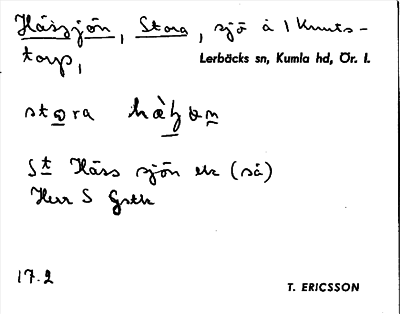 Hässjön, Stora, sjö å 1 Knuts-
torp, Lerbäcks sn, Kumla hd, Ör. l.
stora
St Häss sjön ek (så)
Herr S
17.2 T. ERICSSON